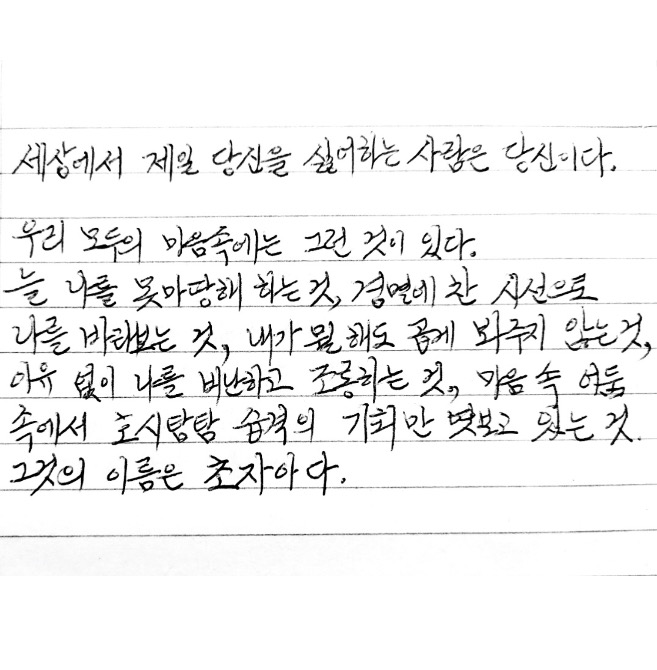 세상에서 제일 당신을 싫어하는 사람은 당신이다.
우리 모두의 마음속에는 그런 것이 있다.
늘 나를 못마땅해 하는 것, 경멸에 찬 시선으로
나를 바라보는 것, 내가 뭘 해도 곱게 봐주지 않는 것,
이유 없이 나를 비난하고 조롱하는 것, 마음 속 어둠
속에서 호시탐탐 습격의 기회만 엿보고 있는 것.
그것의 이름은 초자아다.